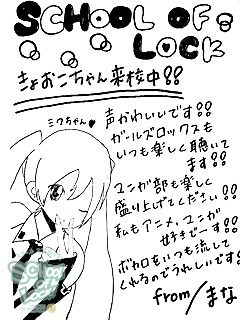 SCHOOL OF
LOCK
きょおこちゃん来校中!!
ミクちゃん♥
声かわいいです!!
ガールズロックスも
いつも楽しく聴いて
ます!!
マンガ部も楽しく
盛り上げてください!!
私もアニメ、マンガ
好きでーす!!
ボカロをいつも流して
くれるのでうれしいです!!
from/まな